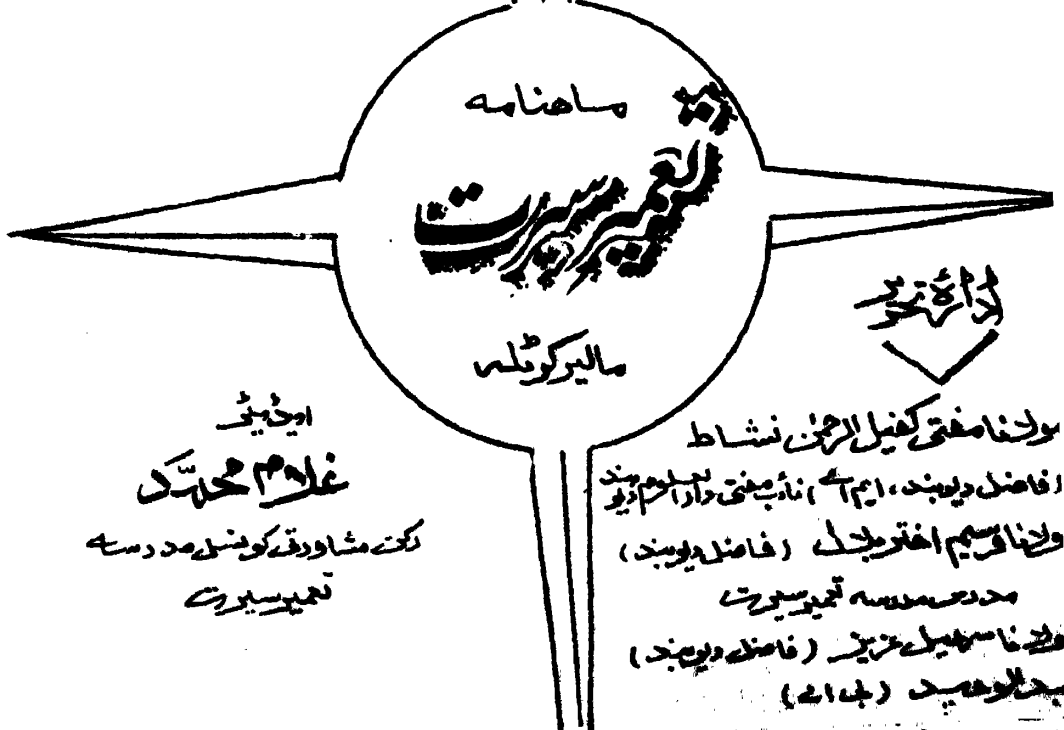 ماهنامه
تعمیر سیرت
مالیر کوٹلہ
ادارۂ تحریر
مولانا مفتی کفیل الرحمٰن نشاط
(فاضل دیوبند، ایم اے) نائب مفتی دارالعلوم دیوبند
مولانا وسیم اختر بلال (فاضل دیوبند)
مدرس مدرسہ تعمیر سیرت
مولانا سہیل عزیز (فاضل دیوبند)
عبدالوحید (بی اے)
ایڈیٹر
غلام محمد
رکن مشاورتی کونسل مدرسہ
تعمیر سیرت